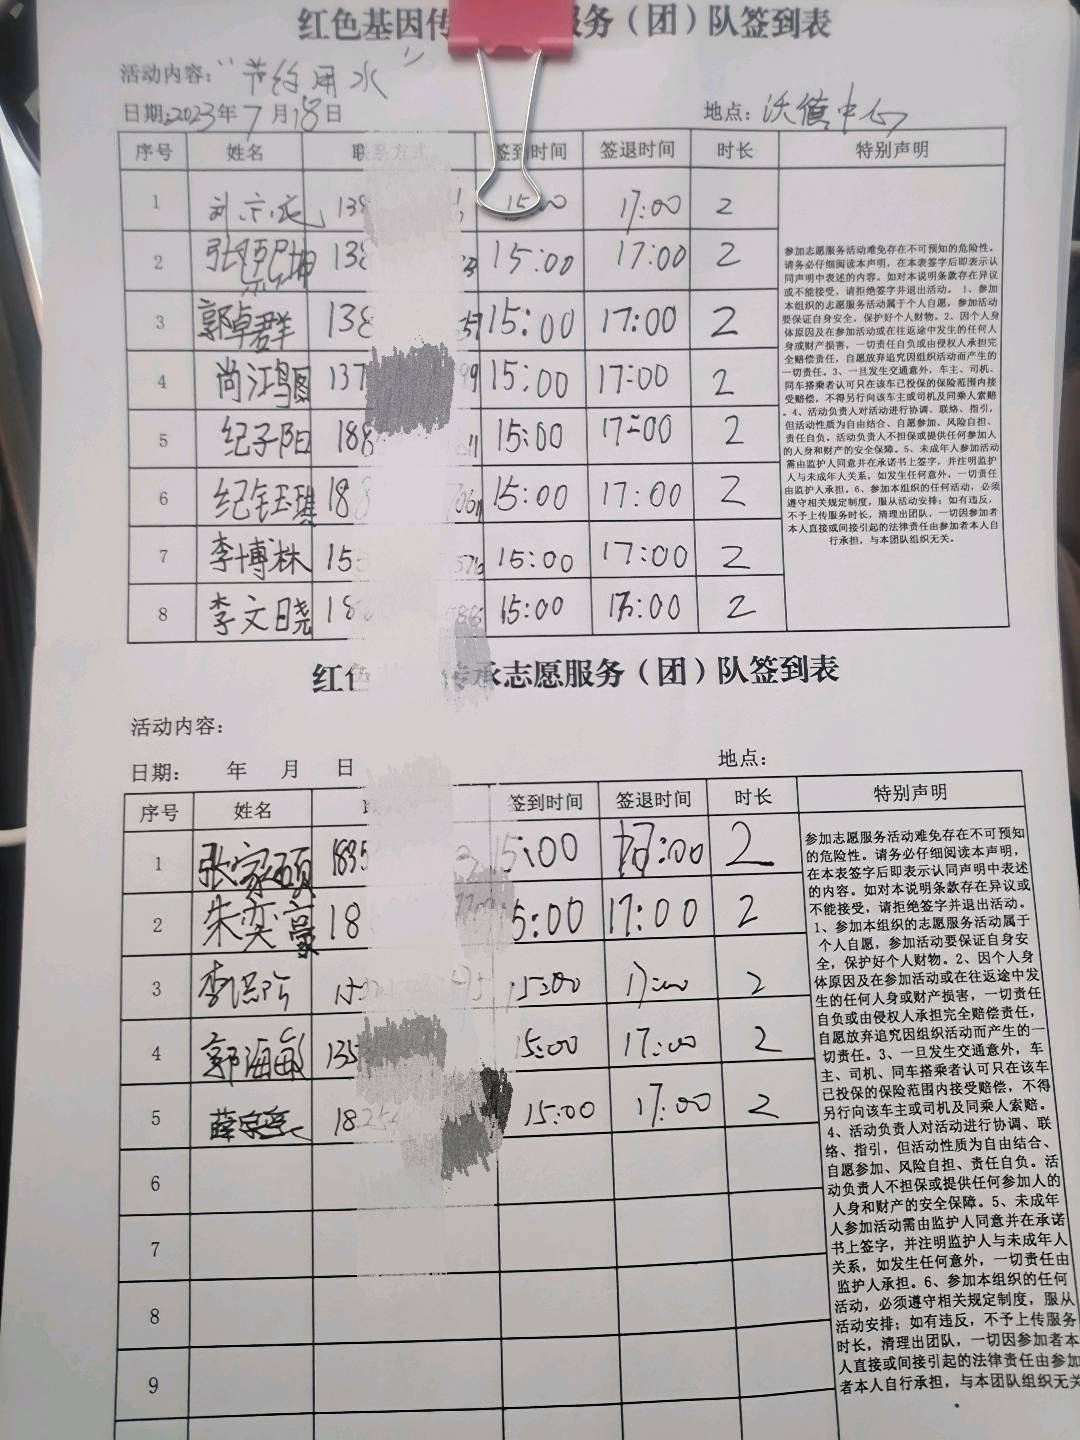 红色基因传 服务（团）队签到表
活动内容："节约用水"
日期：2023年7月18日 地点：沃德中心
序号 姓名 联系方式 签到时间 签退时间 时长 特别声明
1 138 15:00 17:00 2
2 138 15:00 17:00 2
3 郭卓群 138 57 15:00 17:00 2
4 尚江鸿图 137 99 15:00 17:00 2
5 纪子阳 188 15:00 17:00 2
6 纪钰琪 18 15:00 17:00 2
7 李博林 155 15:00 17:00 2
8 李文晓 18 15:00 17:00 2
参加志愿服务活动难免存在不可预知的危险性。
请务必仔细阅读本声明，在本表签字后即表示认
同声明中表述的内容。如对本说明条款存在异议
或不能接受，请拒绝签字并退出活动。 1、参加
本组织的志愿服务活动属于个人自愿，参加活动
要保证自身安全，保护好个人财物。2、因个人身
体原因及在参加活动或在往返途中发生的任何人
身或财产损害，一切责任自负或由侵权人承担完
全赔偿责任，自愿放弃追究因组织活动而产生的
一切责任。3、一旦发生交通意外，车主、司机、
同车搭乘者认可只在该车已投保的保险范围内接
受赔偿，不得另行向该车主或司机及同乘人索赔
。4、活动负责人对活动进行协调、联络、指引，
但活动性质为自由结合、自愿参加、风险自担、
责任自负。活动负责人不担保或提供任何参加人
的人身和财产的安全保障。5、未成年人参加活动
需由监护人同意并在承诺书上签字，并注明监护
人与未成年人关系，如发生任何意外，一切责任
由监护人承担。6、参加本组织的任何活动，必须
遵守相关规定制度，服从活动安排；如有违反，
不予上传服务时长，清理出团队，一切因参加者
本人直接或间接引起的法律责任由参加者本人自
行承担，与本团队组织无关。
红色 传承志愿服务（团）队签到表
活动内容：
日期： 年 月 日 地点：
序号 姓名 签到时间 签退时间 时长 特别声明
1 张家硕 1895 15:00 17:00 2
2 朱奕豪 18 15:00 17:00 2
3 15:00 17:00 2
4 郭海敏 135 15:00 17:00 2
5 薛 1825 15:00 17:00 2
6
7
8
9
参加志愿服务活动难免存在不可预知
的危险性。请务必仔细阅读本声明，
在本表签字后即表示认同声明中表述
的内容。如对本说明条款存在异议或
不能接受，请拒绝签字并退出活动。
1、参加本组织的志愿服务活动属于
个人自愿，参加活动要保证自身安
全，保护好个人财物。2、因个人身
体原因及在参加活动或在往返途中发
生的任何人身或财产损害，一切责任
自负或由侵权人承担完全赔偿责任，
自愿放弃追究因组织活动而产生的一
切责任。3、一旦发生交通意外，车
主、司机、同车搭乘者认可只在该车
已投保的保险范围内接受赔偿，不得
另行向该车主或司机及同乘人索赔。
4、活动负责人对活动进行协调、联
络、指引，但活动性质为自由结合、
自愿参加、风险自担、责任自负。活
动负责人不担保或提供任何参加人的
人身和财产的安全保障。5、未成年
人参加活动需由监护人同意并在承诺
书上签字，并注明监护人与未成年人
关系，如发生任何意外，一切责任由
监护人承担。6、参加本组织的任何
活动，必须遵守相关规定制度，服从
活动安排；如有违反，不予上传服务
时长，清理出团队，一切因参加者本
人直接或间接引起的法律责任由参加
者本人自行承担，与本团队组织无关